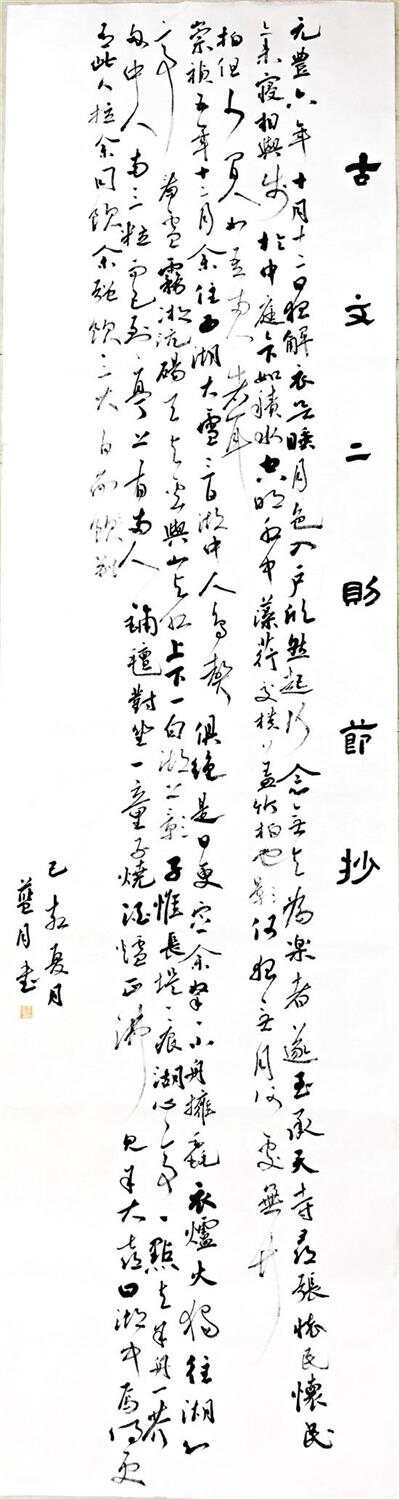 古文二則節抄
元豐六年十月十二日夜解衣欲睡月色入戶欣然起行念無與為樂者遂至承天寺尋張懷民懷民
亦未寢相與步於中庭下如積水空明水中藻荇交橫蓋竹柏也影何夜無月何處無竹
柏但少閒人如吾兩人者耳
崇禎五年十二月余住西湖大雪三日湖中人鳥聲俱絕是日更定余拏一小舟擁毳衣爐火獨往湖心
亭看雪霧凇沆碭天與雲與山與水上下一白湖上影子惟長堤一痕湖心亭一點與余舟一芥
舟中人兩三粒而已到亭上有兩人鋪氈對坐一童子燒酒爐正沸見余大喜曰湖中焉得更
有此人拉余同飲余強飲三大白而別
己亥夏月
藍月書